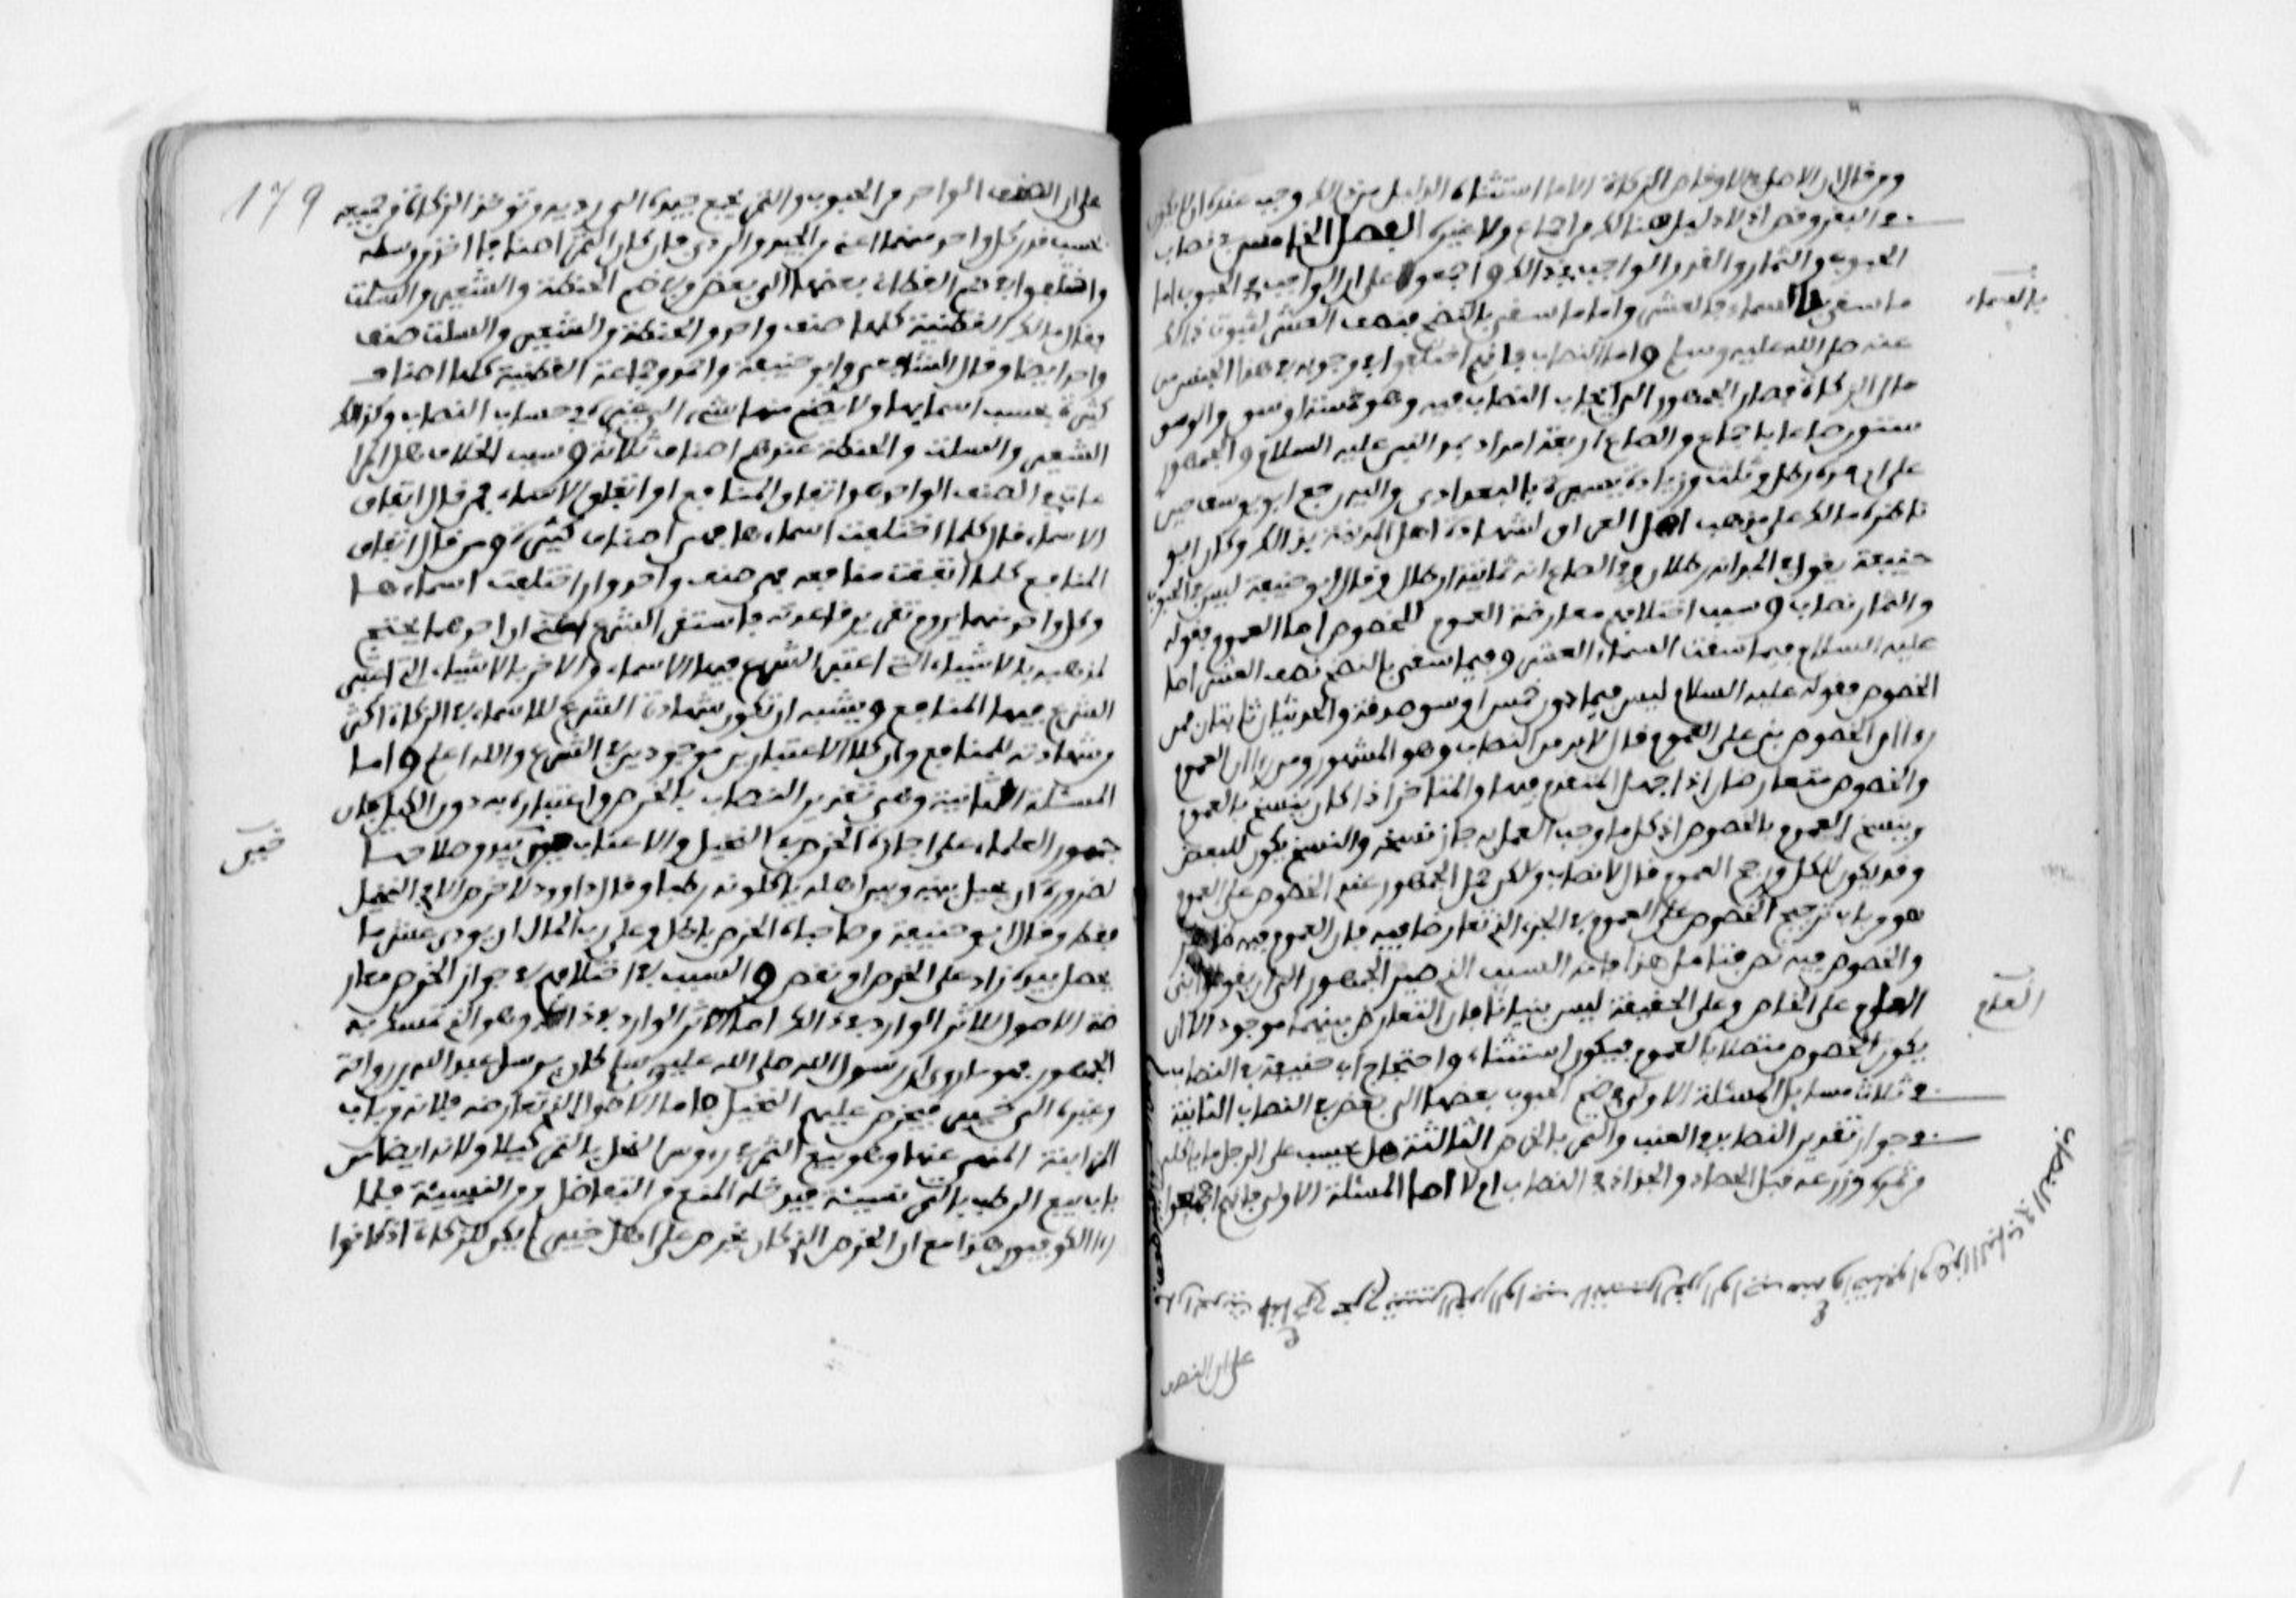 ومن قال ان الاصل هو ان لا وقص في الزكاة الا ما استثناه الدليل من ذلك وجب عنده ان لا يكون
في البقر وقص اذ لا دليل هنالك من اجماع ولا غيره الفصل الخامس في نصاب
الحبوب والثمار والقدر الواجب في ذلك واجمعوا على ان الواجب في الحبوب اما
ما سقي بالسماء فالعشر واما ما سقي بالنضح فنصف العشر لثبوت ذلك
عنه صلى الله عليه وسلم واما النصاب فانهم اختلفوا في وجوبه في هذا الجنس من
مال الزكاة فصار الجمهور الى ايجاب النصاب فيه وهو خمسة اوسق والوسق
ستون صاعا باجماع والصاع اربعة امداد بمد النبي عليه السلام والجمهور
على ان مده رطل وثلث وزيادة يسيرة بالبغدادي واليه رجع ابو يوسف حين
ناظره مالك على مذهب اهل العراق لشهادة اهل المدينة بذلك وكان ابو
حنيفة يقول في المد انه رطلان وفي الصاع انه ثمانية ارطال وقال ابو حنيفة ليس في الحبوب
والثمار نصاب وسبب اختلافهم معارضة العموم للخصوص اما العموم فقوله
عليه السلام فيما سقت السماء العشر وفيما سقي بالنضح نصف العشر اما
الخصوص فقوله عليه السلام ليس فيما دون خمس اوسق صدقة والحديثان ثابتان فمن
راى الخصوص يبنى على العموم قال لا بد من النصاب وهو المشهور ومن راى ان العموم
والخصوص متعارضان اذا جهل المتقدم فيهما والمتاخر اذا كان ينسخ بالعموم
وينسخ العموم بالخصوص اذ كل ما وجب العمل به جاز نسخه والنسخ يكون للبعض
وقد يكون للكل ورجح العموم قال لا نصاب ولكن حمل الجمهور عندي الخصوص على العموم
هو من باب ترجيح الخصوص على العموم في الجزء الذي تعارضا فيه فان العموم فيه ظاهر
والخصوص فيه نص فتامل هذا فانه السبب الذي صير الجمهور الى ان يقولوا بني
العام على الخاص وعلى الحقيقة ليس بنيانا فان التعارض بينهما موجود الا ان
يكون الخصوص متصلا بالعموم فيكون استثناء واحتجاج ابي حنيفة في النصاب
في ثلاث مسايل المسئلة الاولى في ضم الحبوب بعضها الى بعض في النصاب الثانية
في جواز تقدير النصاب في العنب والتمر بالخرص الثالثة هل يحسب على الرجل ما ياكله
من ثمره وزرعه قبل الحصاد والجذاذ في النصاب ام لا اما المسئلة الاولى فانهم اجمعوا
بالسماء
العام
على ان الصنف
179
على ان الصنف الواحد من الحبوب والثمر يجمع جيده الى رديه وتوخذ الزكاة من جميعه
بحسب قدر كل واحد منهما اعني من الجيد والردي فان كان الثمر اصنافا اخذ من وسطه
واختلفوا في ضم القطاني بعضها الى بعض وفي ضم الحنطة والشعير والسلت
فقال مالك القطنية كلها صنف واحد والحنطة والشعير والسلت صنف
واحد ايضا وقال الشافعي وابو حنيفة واحمد وجماعة القطنية كلها اصناف
كثيرة بحسب اسمايها ولا يضم منها شيء الى غيره في حساب النصاب وكذلك
الشعير والسلت والحنطة عندهم اصناف ثلاثة وسبب الخلاف هل المراعاة
في الصنف الواحد هو اتفاق المنافع او اتفاق الاسماء فمن قال اتفاق
الاسماء قال كلما اختلفت اسماءها فهي اصناف كثيرة ومن قال اتفاق
المنافع كلما اتفقت منافعه فهي صنف واحد وان اختلفت اسماءها
وكل واحد منهما يروم تقرير قاعدته باستقراء الشرع اعني ان احدهما يحتج
لمذهبه بالاشياء التي اعتبر الشرع فيها الاسماء والاخر بالاشياء التي اعتبر
الشرع فيها المنافع ويشبه ان تكون شهادة الشرع للاسماء في الزكاة اكثر
من شهادته للمنافع وان كلا الاعتبارين موجودين في الشرع والله اعلم واما
المسئلة الثانية وهي تقدير النصاب بالخرص واعتباره به دون الكيل فان
جمهور العلماء على اجازة الخرص في النخيل والاعناب حين يبدو صلاحها
لضرورة ان يخلى بينه وبين اهله ياكلونه رطبا وقال داوود لا خرص الا في النخيل
فقط وقال ابو حنيفة وصاحباه الخرص باطل وعلى رب المال ان يودي عشر ما
يحصل بيده زاد على الخرص او نقص والسبب في اختلافهم في جواز الخرص معار
ضة الاصول للاثر الوارد في ذلك اما الاثر الوارد في ذلك وهو الذي تمسك به
الجمهور فهو ما روي ان رسول الله صلى الله عليه وسلم كان يرسل عبد الله بن رواحة
وغيره الى خيبر فيخرص عليهم النخيل واما الاصول التي تعارضه فلانه من باب
المزابنة المنهي عنها وهو بيع الثمر في روس النخل بالثمر كيلا ولانه ايضا من
باب بيع الرطب بالتمر نسيئة فيدخله المنع من التفاضل ومن النسيئة فلما
راى الكوفيون هذا مع ان الخرص الذي كان يخرص على اهل خيبر لم يكن للزكاة اذ كانوا
خيبر